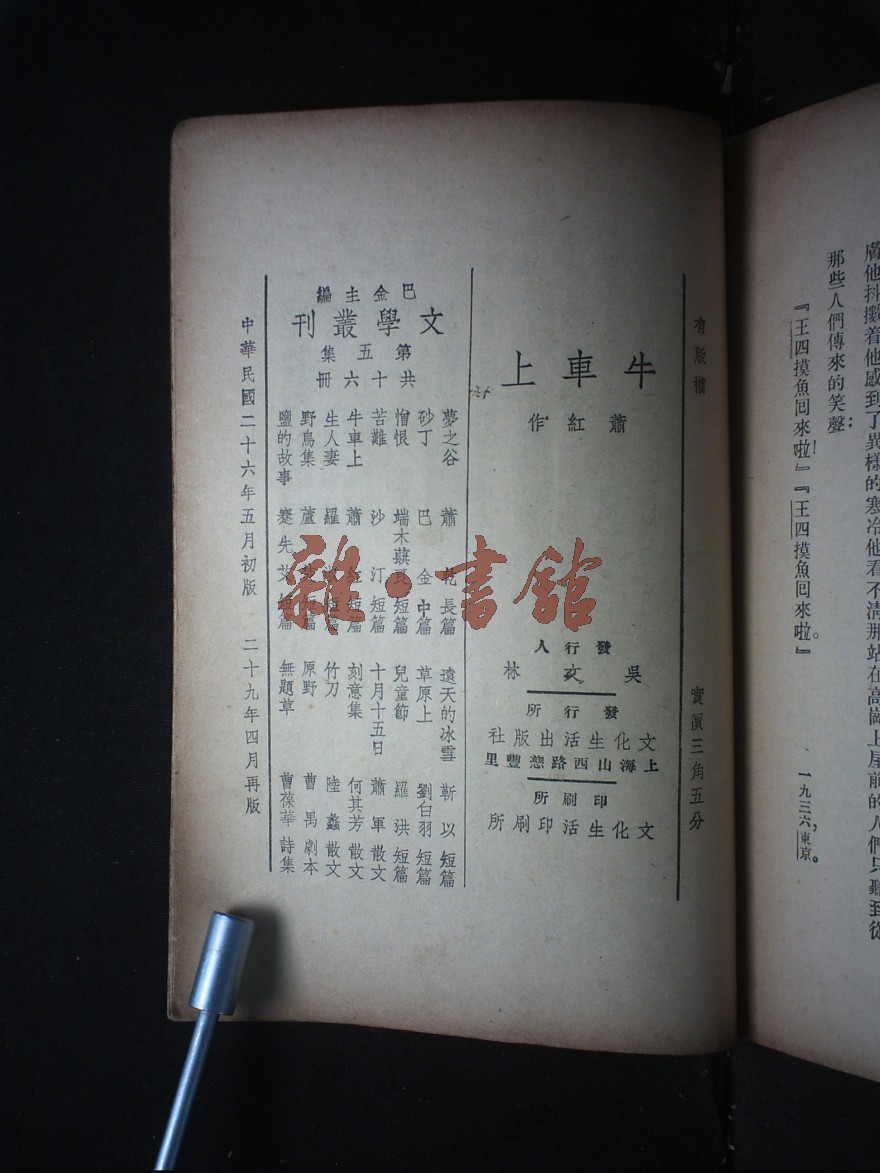 膚他抖擻着他感到了異樣的寒冷他看不清那站在高崗上屋前的人們只聽到從
那些人們傳來的笑聲：
『王四摸魚回來啦！』『王四摸魚回來啦。』
一九三六，東京。
有版權
實價三角五分
牛車上
蕭紅作
發行人
吳文林
發行所
文化生活出版社
上海山西路慈豐里
印刷所
文化生活印刷所
巴金主編
文學叢刊
第五集
共十六冊
夢之谷 蕭乾 長篇
砂丁 巴金 中篇
憎恨 端木蕻良 短篇
苦難 沙汀 短篇
牛車上 蕭紅 短篇
生人妻 羅 短篇
野鳥集 蘆 短篇
鹽的故事 蹇先艾 短篇
遠天的冰雪 靳以 短篇
草原上 劉白羽 短篇
兒童節 羅洪 短篇
十月十五日 蕭軍 散文
刻意集 何其芳 散文
竹刀 陸蠡 散文
原野 曹禺 劇本
無題草 曹葆華 詩集
中華民國二十六年五月初版 二十九年四月再版
雜·書館